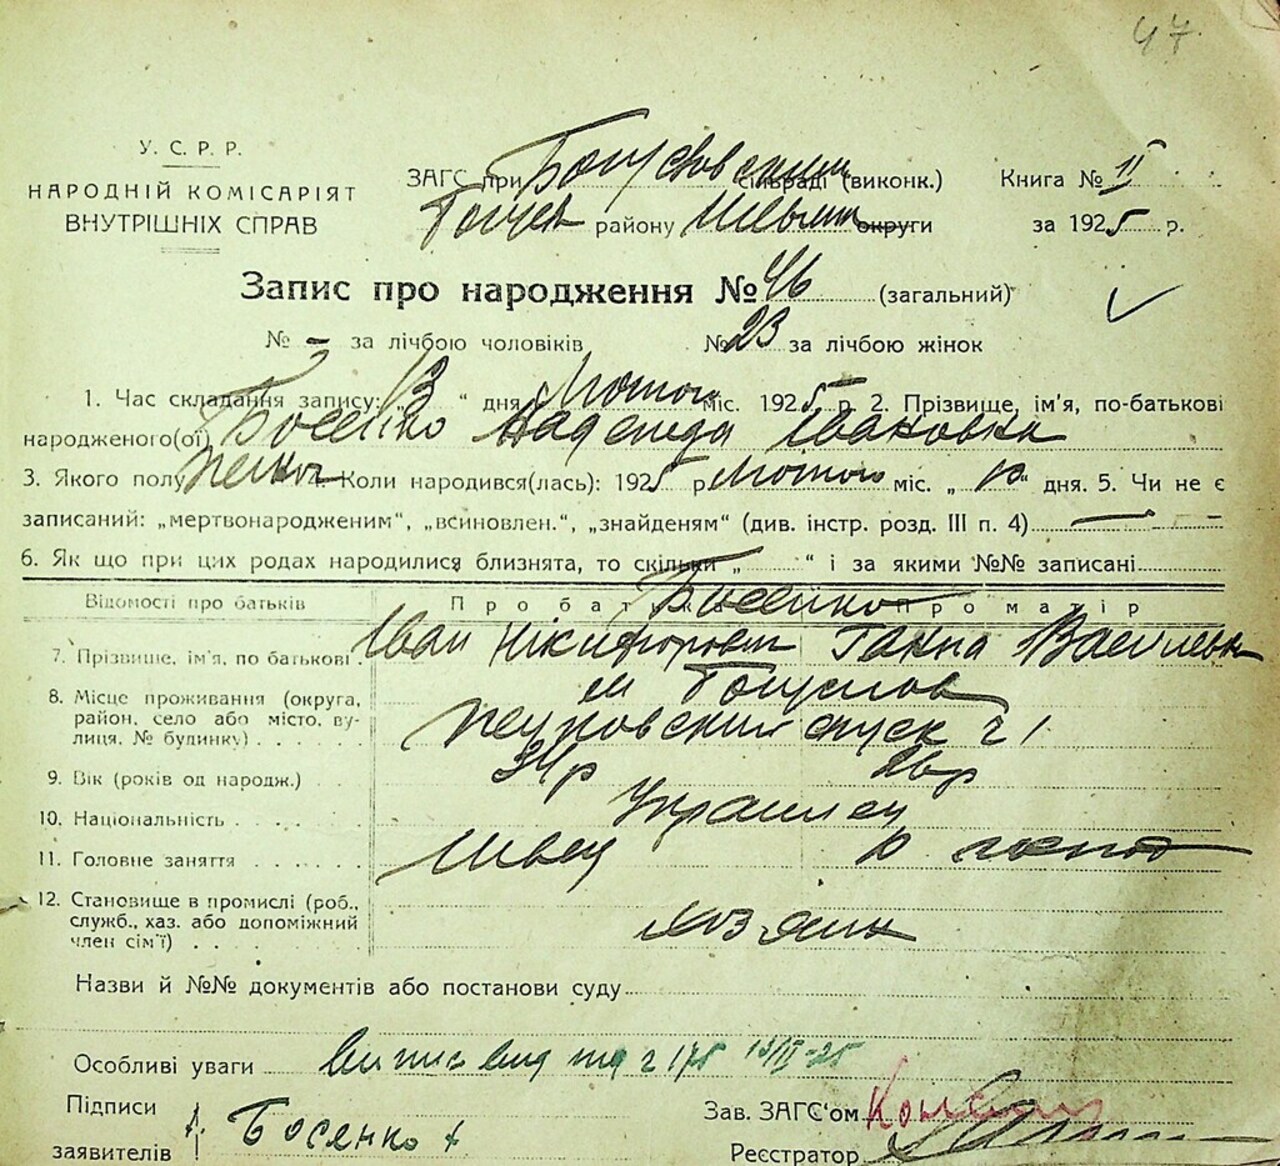 47
У. С. Р. Р.
НАРОДНІЙ КОМІСАРІЯТ
ВНУТРІШНІХ СПРАВ
ЗАГС при сільраді (виконк.) Книга № II
району округи за 1925 р.
Запис про народження № 46 (загальний)
№ – за лічбою чоловіків № 23 за лічбою жінок
1. Час складання запису: „13“ дня Лютого міс. 1925 р. 2. Прізвище, ім'я, по-батькові
народженого(ої) Босенко Надежда Івановна
3. Якого полу 4. Коли народився(лась): 1925 р. Лютого міс. „ “ дня. 5. Чи не є
записаний: „мертвонародженим“, „всиновлен.“, „знайденям“ (див. інстр. розд. III п. 4) —
6. Як що при цих родах народилися близнята, то скільки „ “ і за якими №№ записані
Відомості про батьків Про батька Про матір
Босенко
7. Прізвище, ім'я, по батькові Іван Нікифорович Ганна
8. Місце проживання (округа,
район, село або місто, ву-
лиця, № будинку) м Богуслав
спуск ч 1
9. Вік (років од народж.) 34 р 26 р
10. Національність Украинец
11. Головне заняття Швец
12. Становище в промислі (роб.,
служб., хаз. або допоміжний
член сім'ї) хозяин
Назви й №№ документів або постанови суду
Особливі уваги 175 13/II-25
Підписи
заявителів Босенко
Зав. ЗАГС'ом
Реєстратор